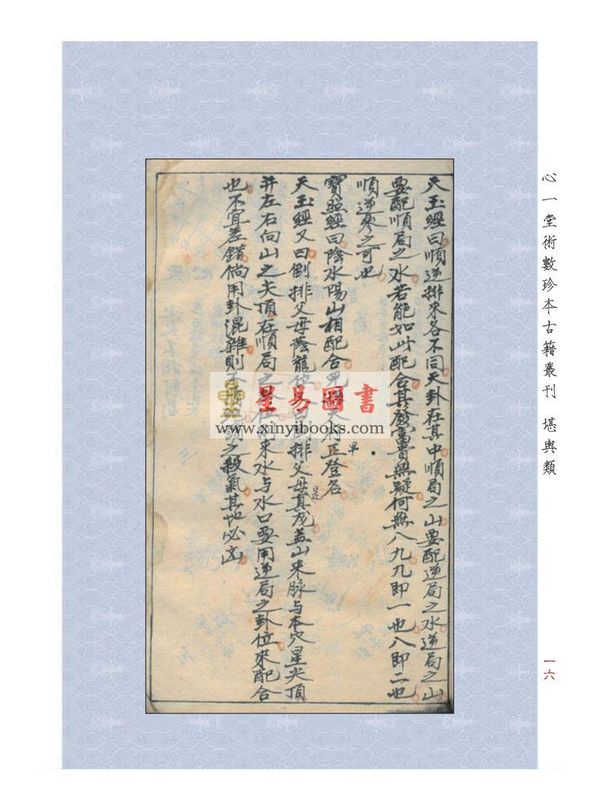 心一堂術數珍本古籍叢刊 堪輿類
一六
天玉經曰順逆排來各不同天卦在其中順局之山要配逆局之水逆局之山
要配順局之水若能如此配合其發富貴無疑何無八九九即一也八即二也
順逆零之可也
寶照經曰陰水陽山相配合
正登名
天玉經又曰倒排父母蔭龍位
排父母真龍
是
蓋山來脈与本穴星尖頂
并左右向山之尖頂在順局之
來水与水口要用逆局之卦位來配合
也不宜差錯倘用卦混雜則
之殺氣其地必凶
星易圖書
www.xinyibooks.com